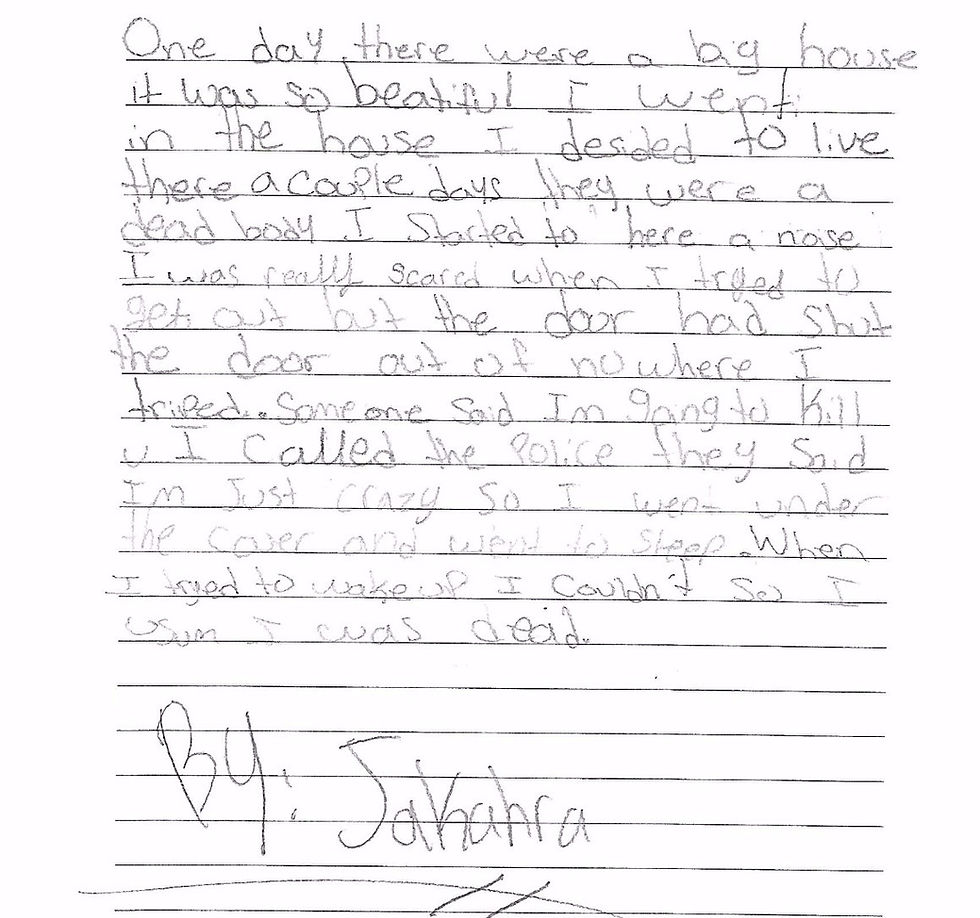 One day there were a big house
it was so beatiful I went
in the house I desided to live
there a couple days they were a
dead body I started to here a noise
I was really scared when I tryed to
get out but the door had shut
the door out of nowhere I
triped. Someone said Im going to kill
u I called the Police they said
Im Just crazy so I went under
the cover and went to sleep. When
I tryed to wake up I couldn't so I
usum I was dead.
By: Jakahra